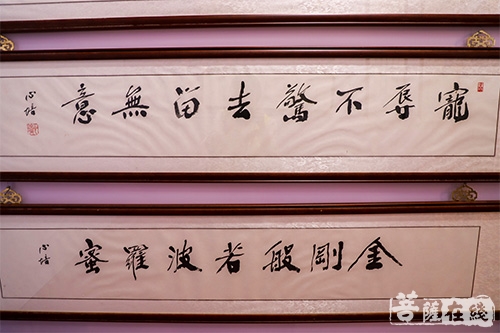 寵辱不驚去留無意
心培
金剛般若波羅蜜
心培
菩薩在綫